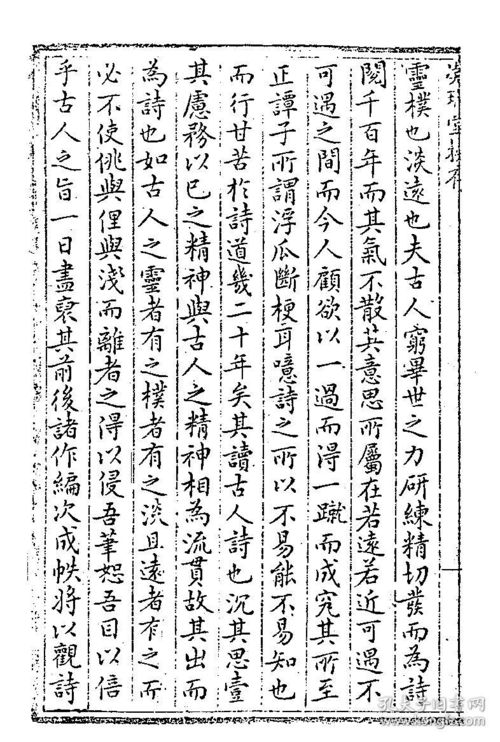 靈樸也淡遠也夫古人窮畢世之力研練精切發而為詩
閱千百年而其氣不散其意思所屬在若遠若近可遇不
可遇之間而今人顧欲以一過而得一蹴而成究其所至
正譚子所謂浮瓜斷梗耳噫詩之所以不易能不易知也
而行甘苦於詩道幾二十年矣其讀古人詩也沉其思壹
其慮務以已之精神與古人之精神相為流貫故其出而
為詩也如古人之靈者有之樸者有之淡且遠者有之而
必不使佻與俚與淺而離者之得以侵吾筆恕吾目以倍
乎古人之旨一日盡裒其前後諸作編次成帙將以觀詩
孔夫子旧书网